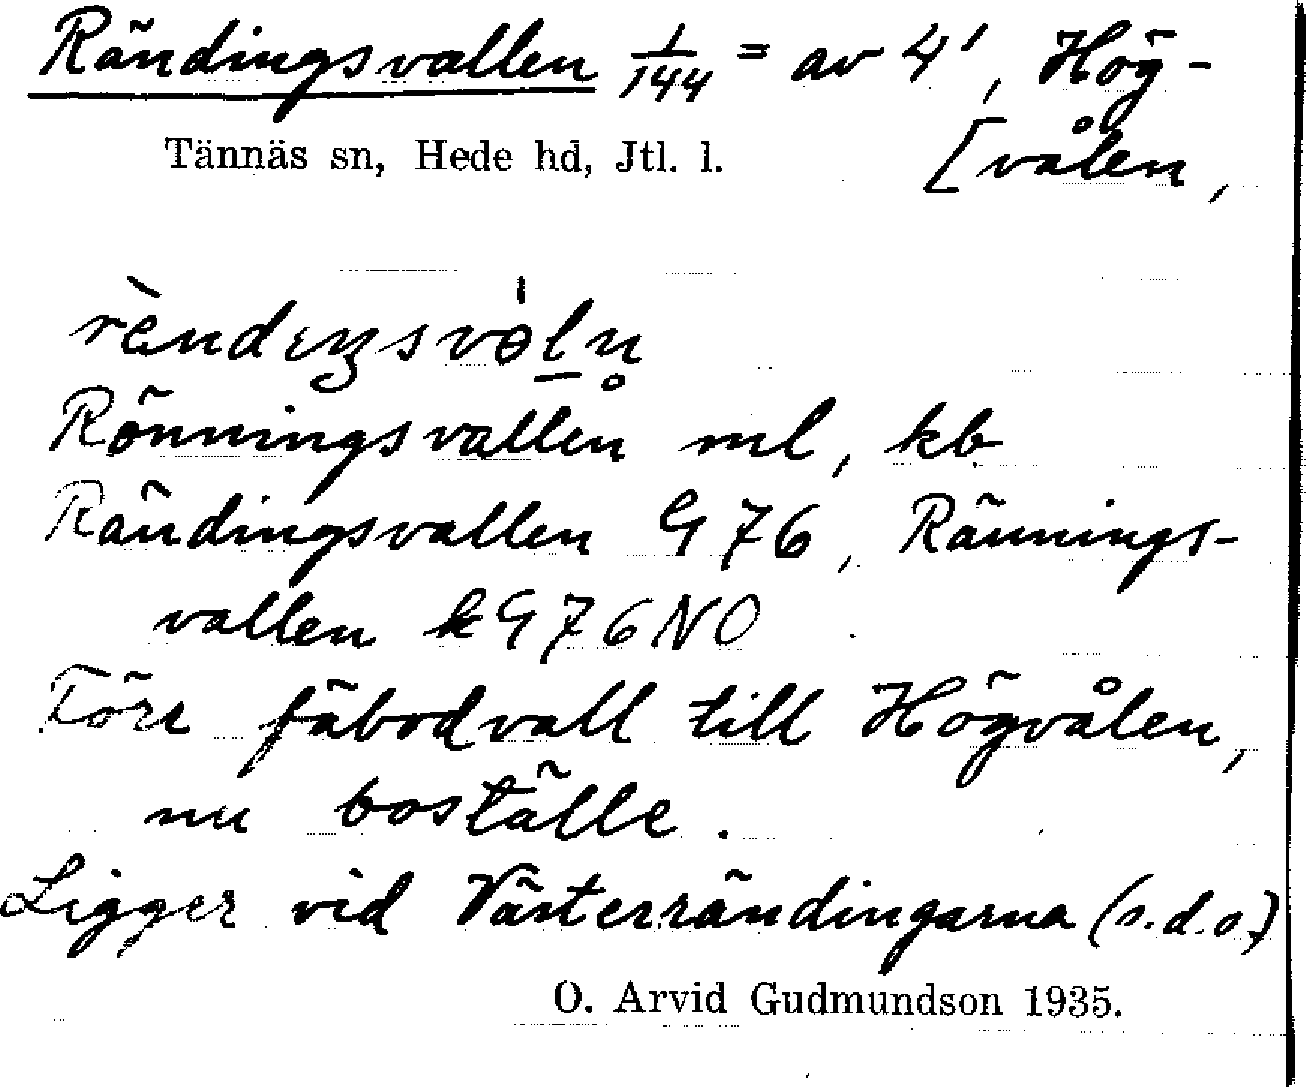 Rändingsvallen 1/144 = av 4', Hög-
Tännäs sn, Hede hd, Jtl. l. [vålen,
Rönningsvallen ml, kb
Rändingsvallen G 76, Rännings-
vallen kG 76 NO
Förr fäbodvall till Högvålen,
nu boställe.
Ligger vid Västerrändingarna (s.d.o.)
O. Arvid Gudmundson 1935.